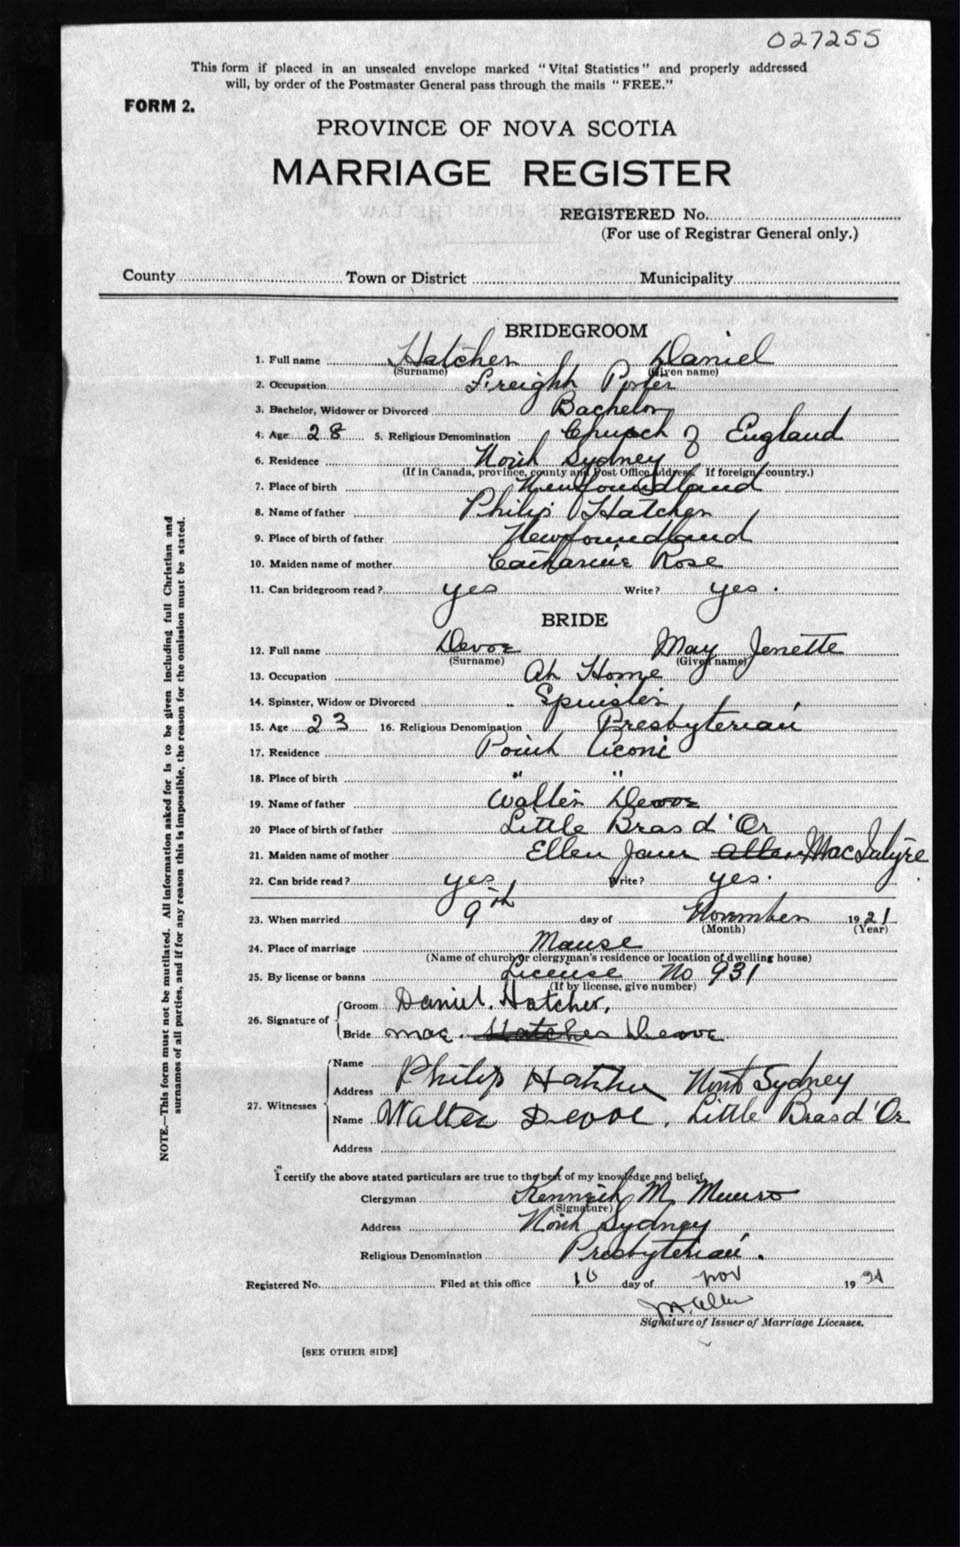 027255
This form if placed in an unsealed envelope marked "Vital Statistics" and properly addressed
will, by order of the Postmaster General pass through the mails "FREE."
FORM 2.
PROVINCE OF NOVA SCOTIA
MARRIAGE REGISTER
REGISTERED No.
(For use of Registrar General only.)
County Town or District Municipality
BRIDEGROOM
1. Full name Hatcher Daniel
(Surname) (Given name)
2. Occupation Freight Porter
3. Bachelor, Widower or Divorced Bachelor
4. Age 28 5. Religious Denomination Church of England
6. Residence North Sydney
(If in Canada, province, county and Post Office address. If foreign country.)
7. Place of birth Newfoundland
8. Name of father Philip Hatcher
9. Place of birth of father Newfoundland
10. Maiden name of mother Catharine Rose
11. Can bridegroom read? yes Write? yes.
BRIDE
12. Full name Devoe May Jenette
(Surname) (Given name)
13. Occupation At Home
14. Spinster, Widow or Divorced Spinster
15. Age 23 16. Religious Denomination Presbyterian
17. Residence Point Aconi
18. Place of birth " "
19. Name of father Walter Devoe
20 Place of birth of father Little Bras d'Or
21. Maiden name of mother Ellen Jane Allen MacIntyre
22. Can bride read? yes Write? yes.
23. When married 9th day of November 1921
(Month) (Year)
24. Place of marriage Manse
(Name of church or clergyman's residence or location of dwelling house)
25. By license or banns License No 931
(If by license, give number)
26. Signature of Groom Daniel. Hatcher.
Bride mae. Hatcher Devoe.
27. Witnesses Name
Address Philip Hatcher North Sydney
Name Walter Devoe. Little Bras d'Or
Address
I certify the above stated particulars are true to the best of my knowledge and belief.
Clergyman Kenneth M. Munro
(Signature)
Address North Sydney
Religious Denomination Presbyterian.
Registered No. Filed at this office 10 day of nov 1921
Signature of Issuer of Marriage Licenses.
[SEE OTHER SIDE]
NOTE.—This form must not be mutilated. All information asked for is to be given including full Christian and
surnames of all parties, and if for any reason this is impossible, the reason for the omission must be stated.